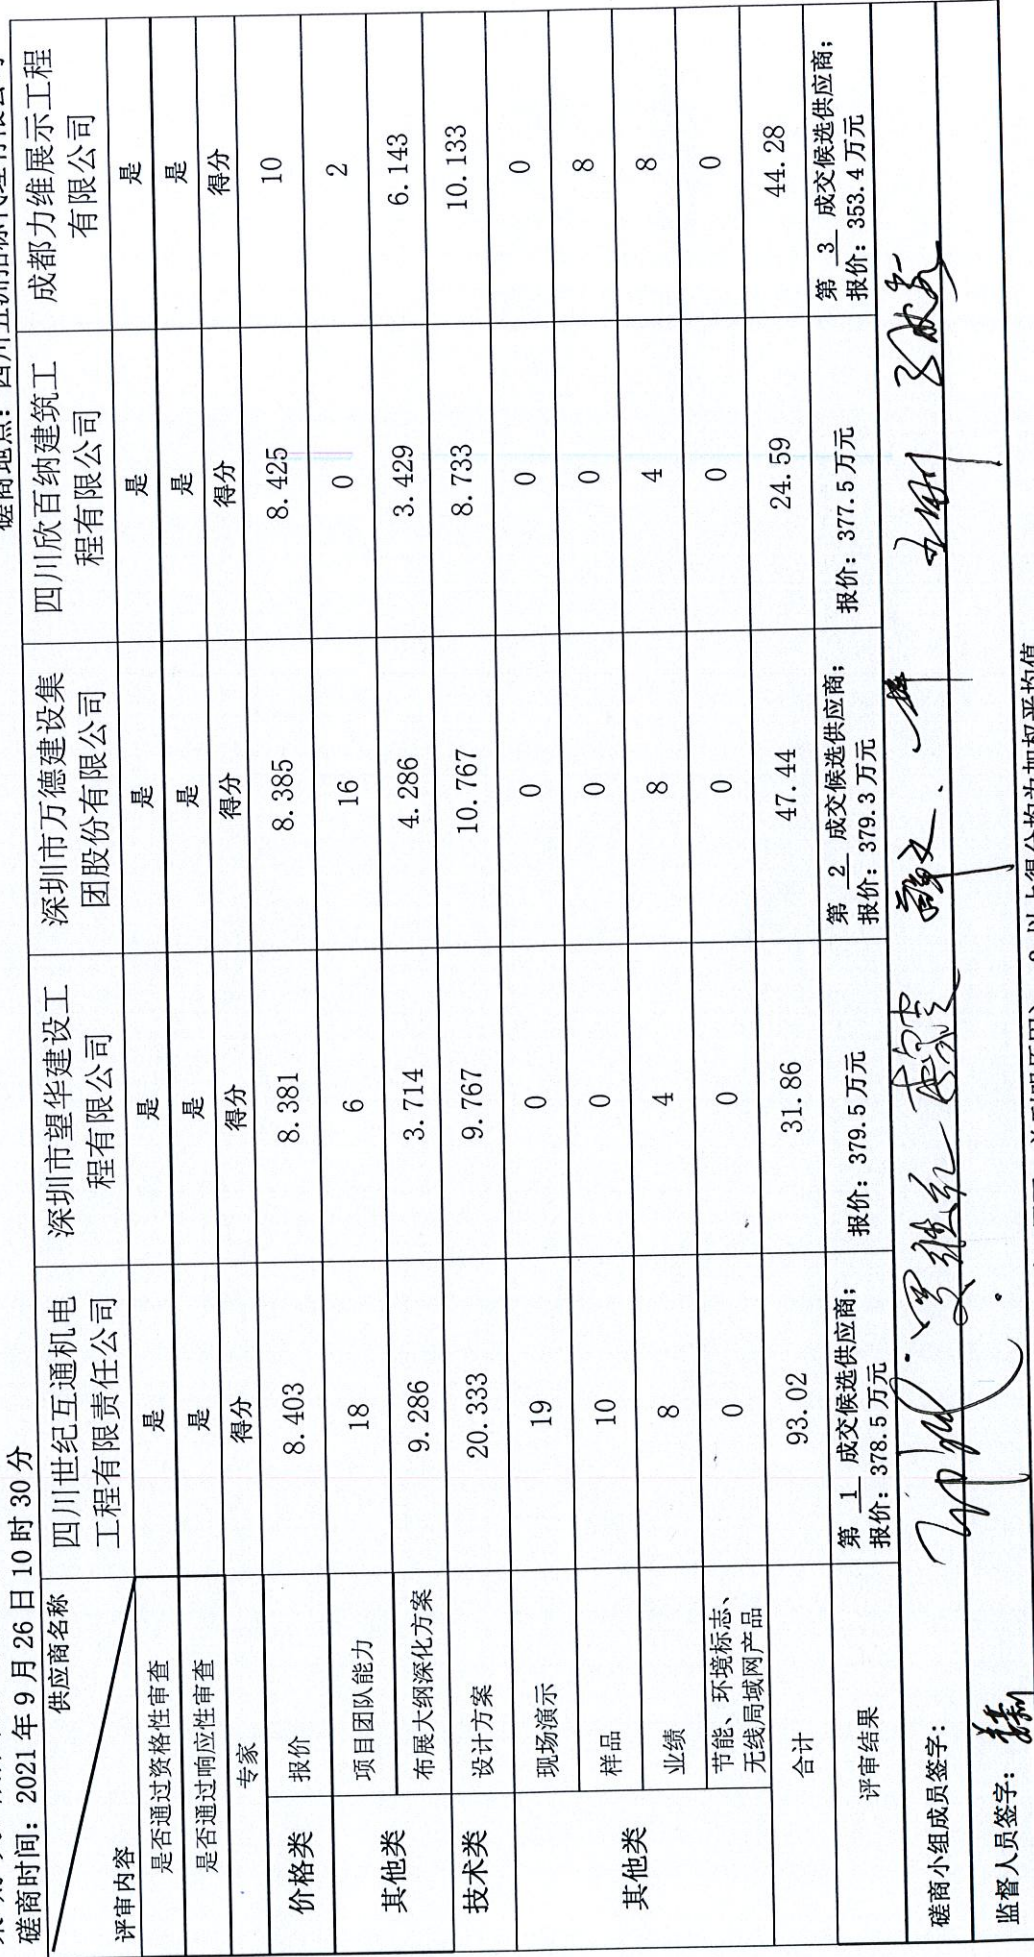 磋商时间：2021 年 9 月 26 日 10 时 30 分
供应商名称
评审内容
四川世纪互通机电
工程有限责任公司
深圳市望华建设工
程有限公司
深圳市万德建设集
团股份有限公司
四川欣百纳建筑工
程有限公司
成都力维展示工程
有限公司
是否通过资格性审查 是 是 是 是 是
是否通过响应性审查 是 是 是 是 是
专家 得分 得分 得分 得分 得分
价格类 报价 8.403 8.381 8.385 8.425 10
其他类 项目团队能力 18 6 16 0 2
布展大纲深化方案 9.286 3.714 4.286 3.429 6.143
技术类 设计方案 20.333 9.767 10.767 8.733 10.133
其他类 现场演示 19 0 0 0 0
样品 10 0 0 0 8
业绩 8 4 8 4 8
节能、环境标志、
无线局域网产品 0 0 0 0 0
合计 93.02 31.86 47.44 24.59 44.28
评审结果
第 1 成交候选供应商；
报价：378.5 万元
报价：379.5 万元
第 2 成交候选供应商；
报价：379.3 万元
报价：377.5 万元
第 3 成交候选供应商；
报价：353.4 万元
磋商小组成员签字：
监督人员签字：